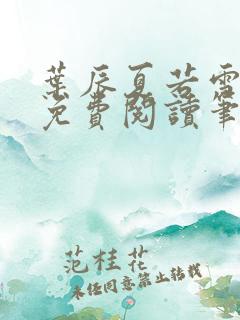 葉辰夏若雪
免費閱讀筆
范桂花
未经同意禁止转载